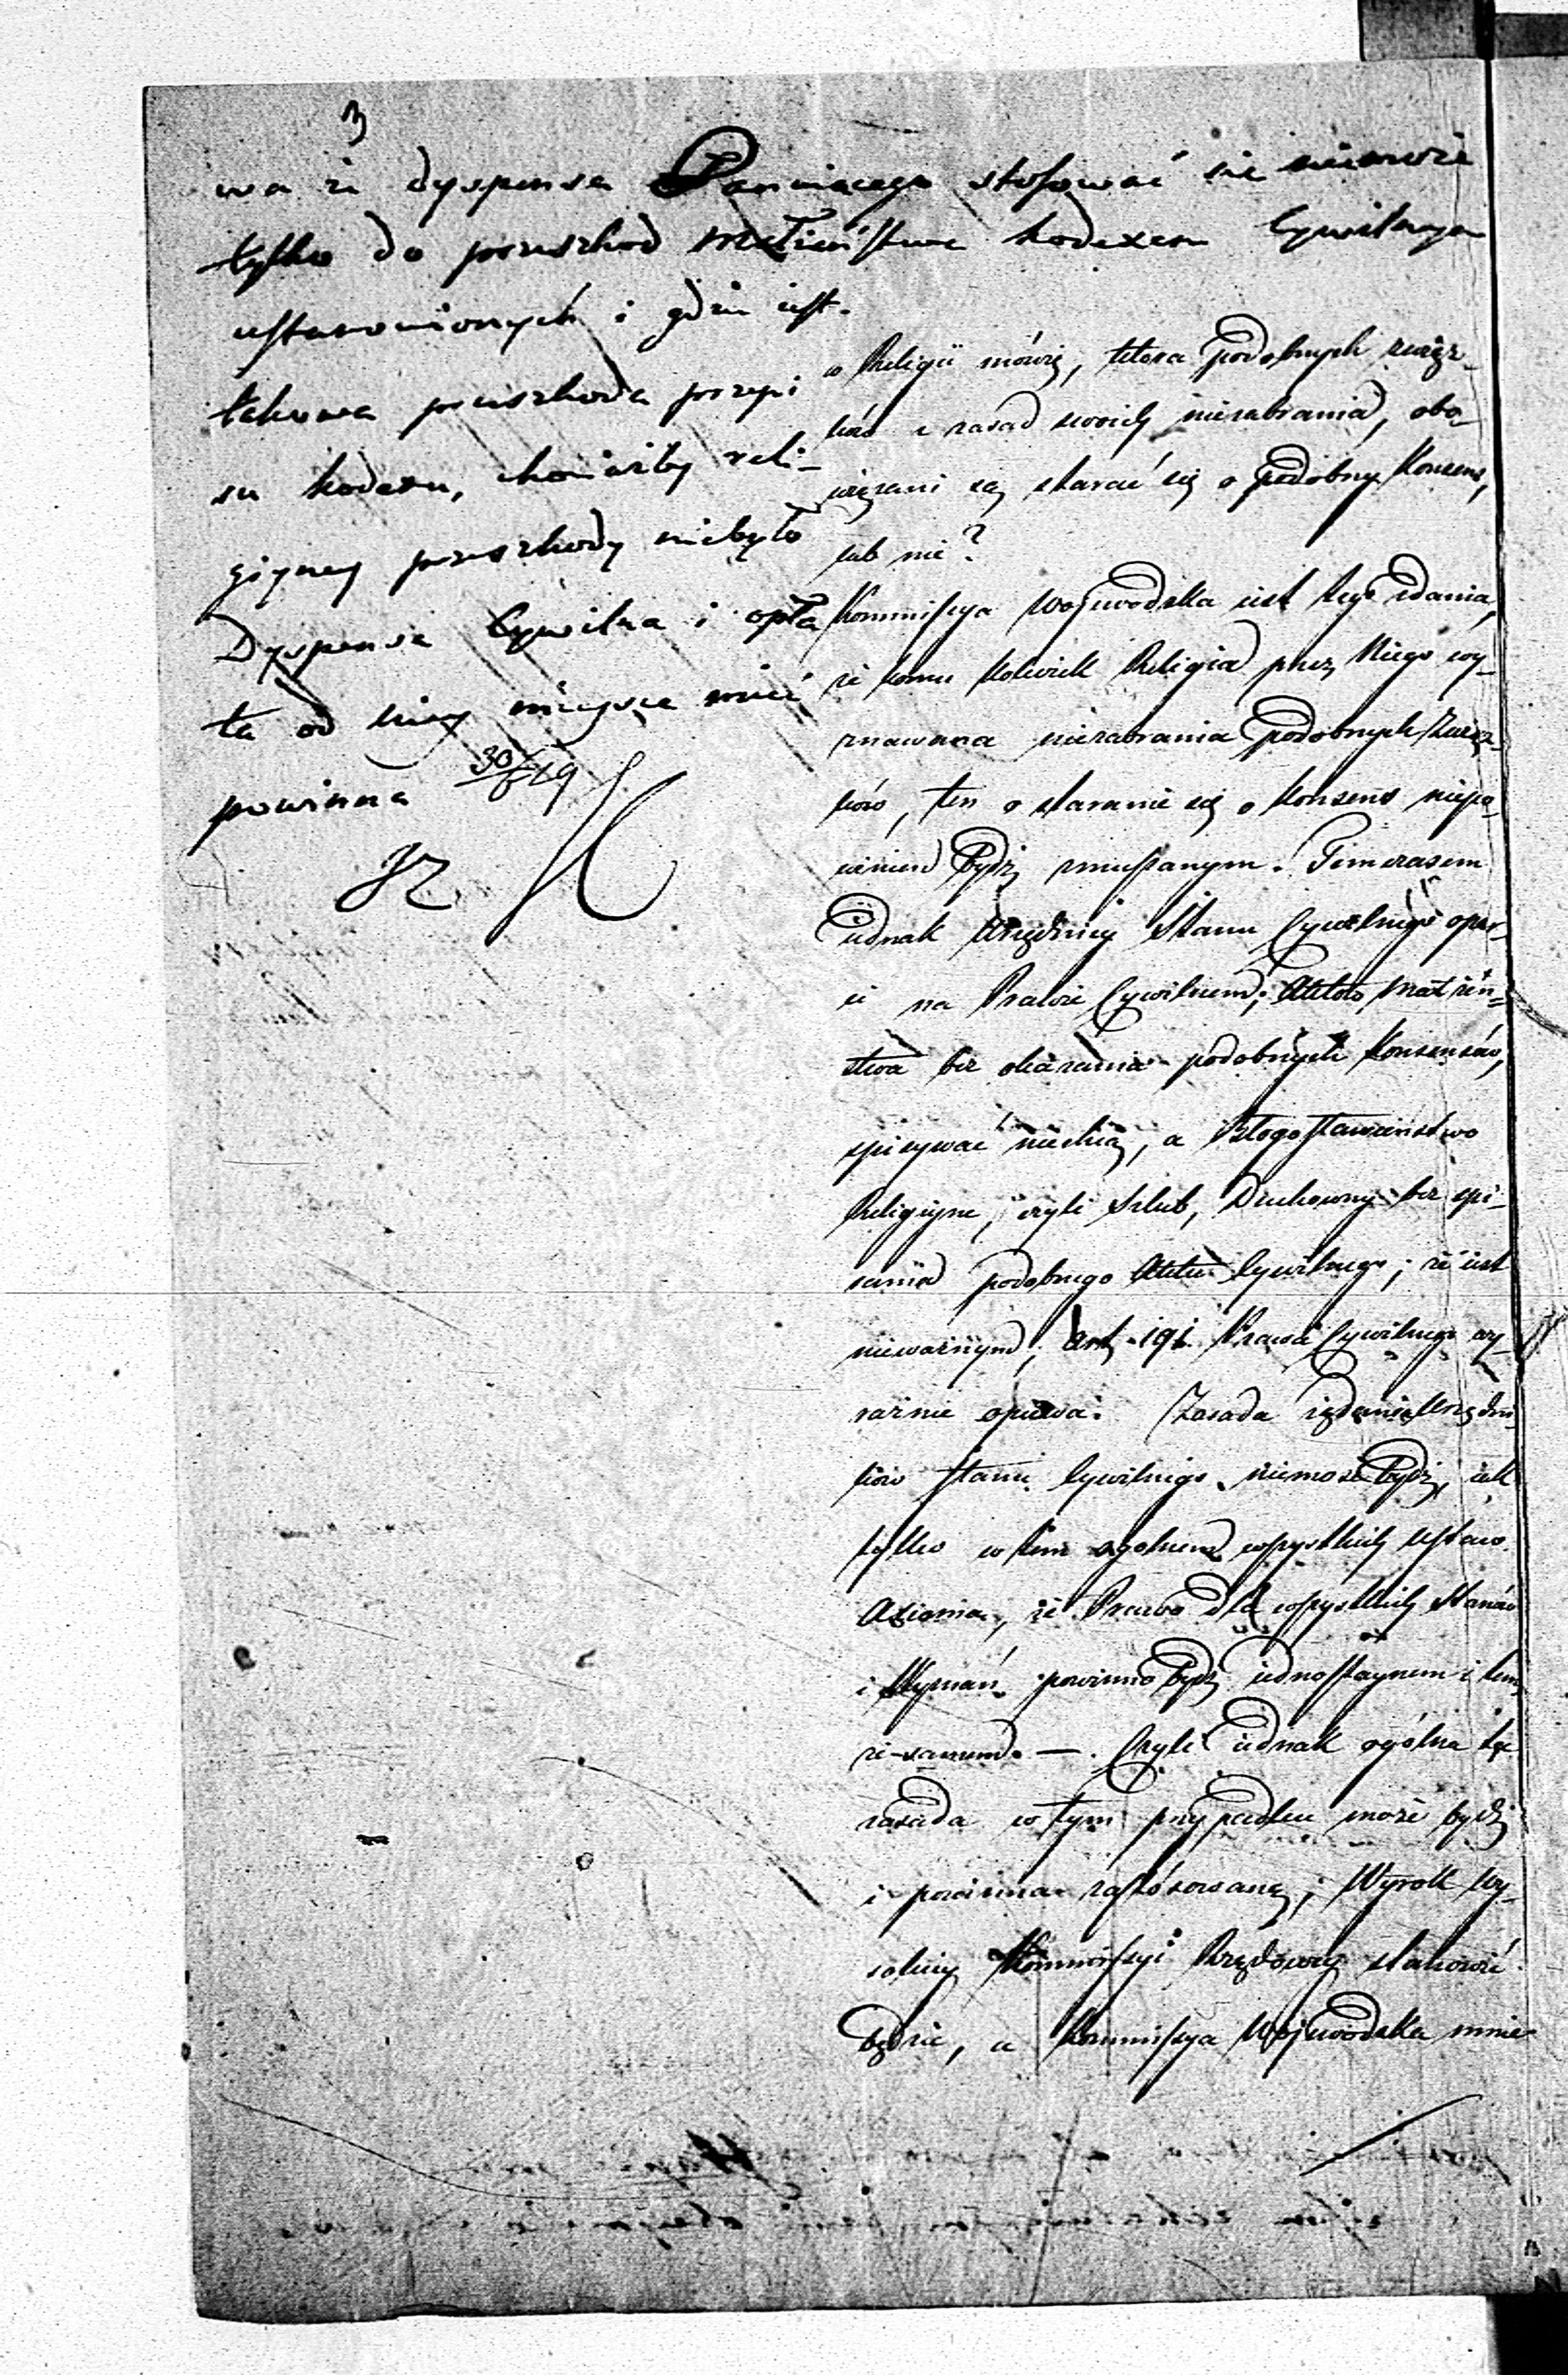 3
wa że dyspensa Panuiącego stosować się niemoże
tylko do przeszkod małżeństwa kodexem Cywilnym
ustanowionych i gdzie iest
takowa przeszkoda przepi
su kodexu, choćiażby reli-
giyney przeszkody niebyło
Dyspensa Cywilna i opła
ta od niey mieysce mieć
powinna 30/6 19
w Religii mówię, ktora podobnych związ-
ków z zasad swoich niezabrania, obo-
wiązani są starać się o podobny Konsens,
lub nie?
Kommissya Wojewodzka iest tego zdania,
że komu kolwiek Religia przez Niego wy-
znawana niezabrania podobnych Związ-
ków, ten o staranie się o Konsens niepo-
winien bydź zmuszanym. Tymczasem
iednak Urzędnicy Stanu Cywilnego opar-
ci na Prawie Cywilnem; Aktów Małżeń-
stwa bez okazania podobnych Konsensów,
spisywać niechcą, a Błogosławieństwo
Religiyne, czyli Szlub, Duchowny bez spi-
sania podobnego Aktu Cywilnego; że iest
nieważnym, Art. 191. Prawa Cywilnego wy-
raźnie opiewa. Zasada żądania Urzędni-
ków stanu Cywilnego niemoże bydź, iak
tylko w tem ogolnem wszystkich Ustaw
Axioma, że Prawo dla wszystkich Stanów
i Wyznań powinno bydź iednostaynem i tem
że samem. — Czyli iednak ogólna ta
zasada w tym przypadku może bydź
i powinna zastósowaną; Wyrok Wy-
sokiey Kommissyi Rządowey stanowić
będzie, a Kommissya Wojewodzka mnie